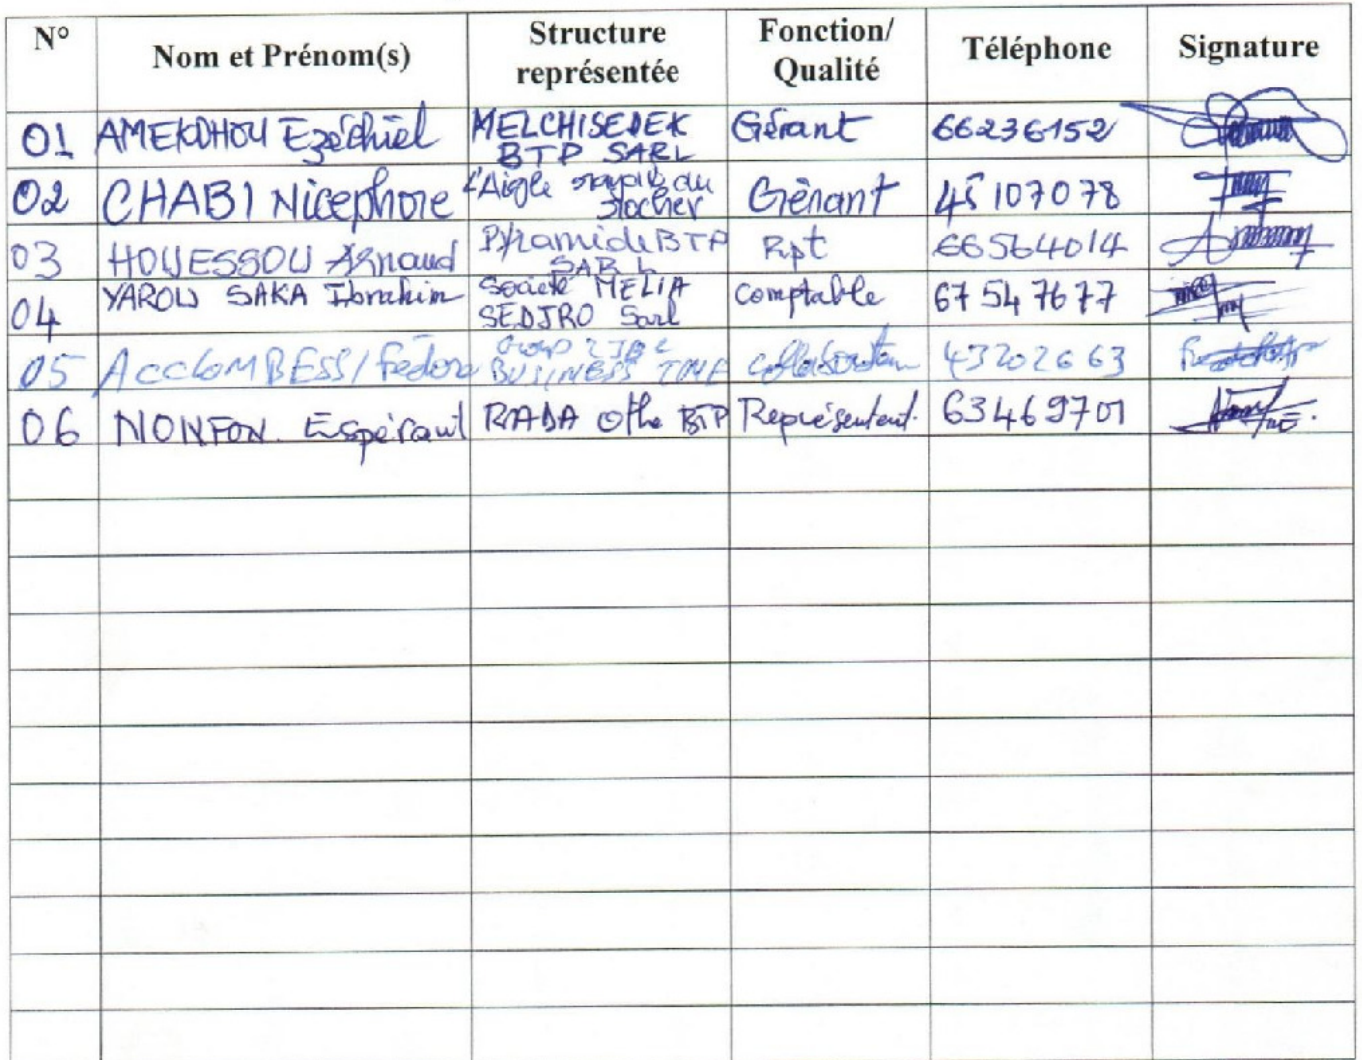 N° Nom et Prénom(s) Structure représentée Fonction/ Qualité Téléphone Signature
01 AMEKDHOU Ezéchiel MELCHISEDEK BTP SARL Gérant 66236152
02 CHABI Nicephore L'Aigle du Rocher Gérant 45107078
03 HOUESSOU Arnaud Pyramide BTP SARL Rpt 66564014
04 YAROU SAKA Ibrahim Société MELIA SEDJRO Sarl Comptable 67547677
05 BUSINESS Collaborateur 43202663
06 NONFON Espérant RADA BTP Représentant. 63469701